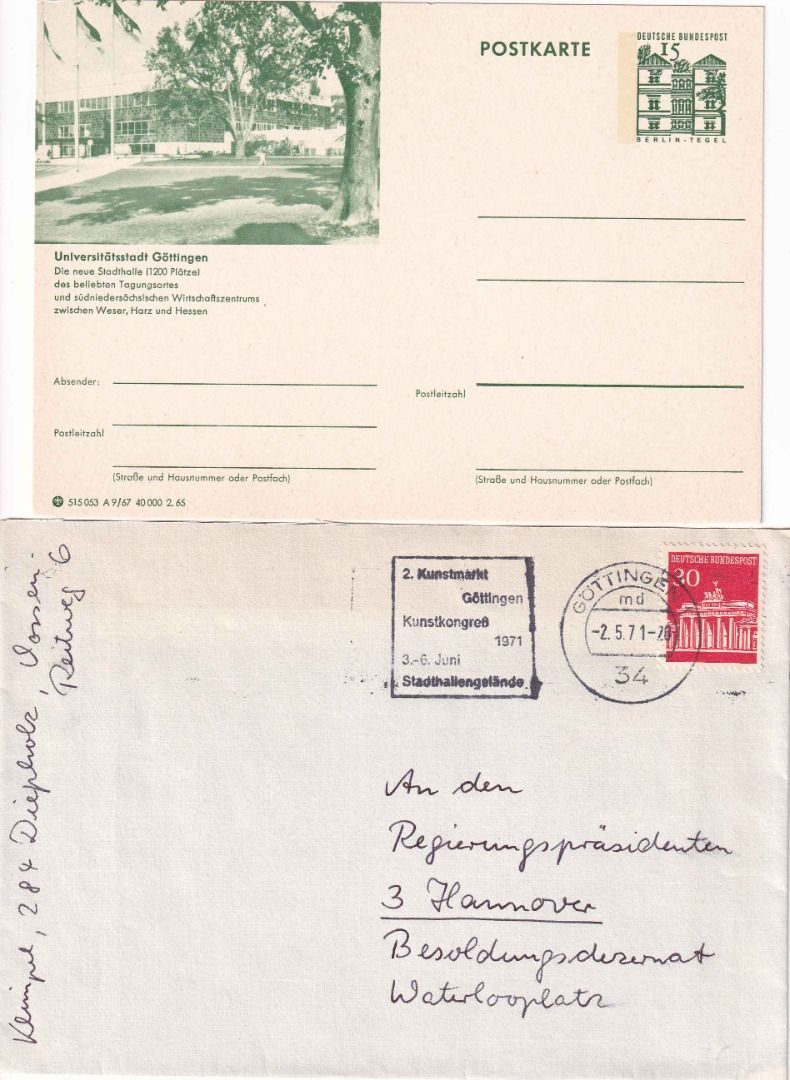 POSTKARTE
DEUTSCHE BUNDESPOST
15
BERLIN-TEGEL
Universitätsstadt Göttingen
Die neue Stadthalle (1200 Plätze)
des beliebten Tagungsortes
und südniedersächsischen Wirtschaftszentrums
zwischen Weser, Harz und Hessen
Absender:
Postleitzahl
(Straße und Hausnummer oder Postfach)
Postleitzahl
(Straße und Hausnummer oder Postfach)
515 053 A 9/67 40 000 2. 65
2. Kunstmarkt
Göttingen
Kunstkongreß
1971
3.-6. Juni
Stadthallengelände
GÖTTINGEN
md
-2.5.71-20
34
DEUTSCHE BUNDESPOST
30
An den
Regierungspräsidenten
3 Hannover
Besoldungsdezernat
Waterlooplatz
Klimpel, 284 Diepholz,
Reitweg 6